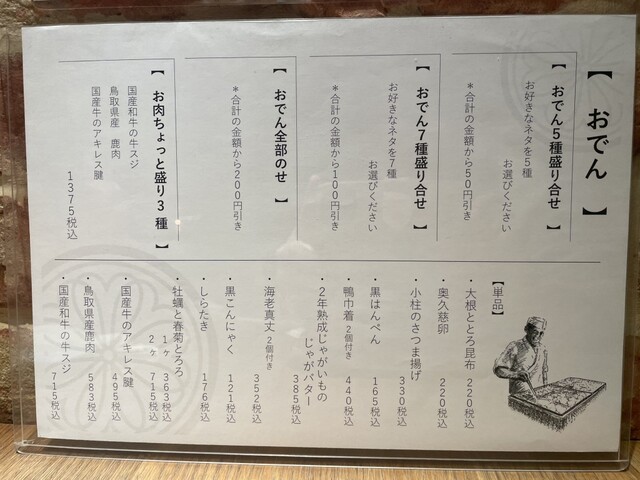 【 おでん 】
【 おでん5種盛り合せ 】
お好きなネタを5種
お選びください
＊合計の金額から50円引き
【 おでん7種盛り合せ 】
お好きなネタを7種
お選びください
＊合計の金額から100円引き
【 おでん全部のせ 】
＊合計の金額から200円引き
【 お肉ちょっと盛り3種 】
国産和牛の牛スジ
鳥取県産 鹿肉
国産牛のアキレス腱
1375税込
【単品】
・大根ととろ昆布 220税込
・奥久慈卵 220税込
・小柱のさつま揚げ 330税込
・黒はんぺん 165税込
・鴨巾着 2個付き 440税込
・2年熟成じゃがいもの
じゃがバター 385税込
・海老真丈 2個付き 352税込
・黒こんにゃく 121税込
・しらたき 176税込
・牡蠣と春菊とろろ
1ヶ 363税込
2ヶ 715税込
・国産牛のアキレス腱 495税込
・鳥取県産鹿肉 583税込
・国産和牛の牛スジ 715税込